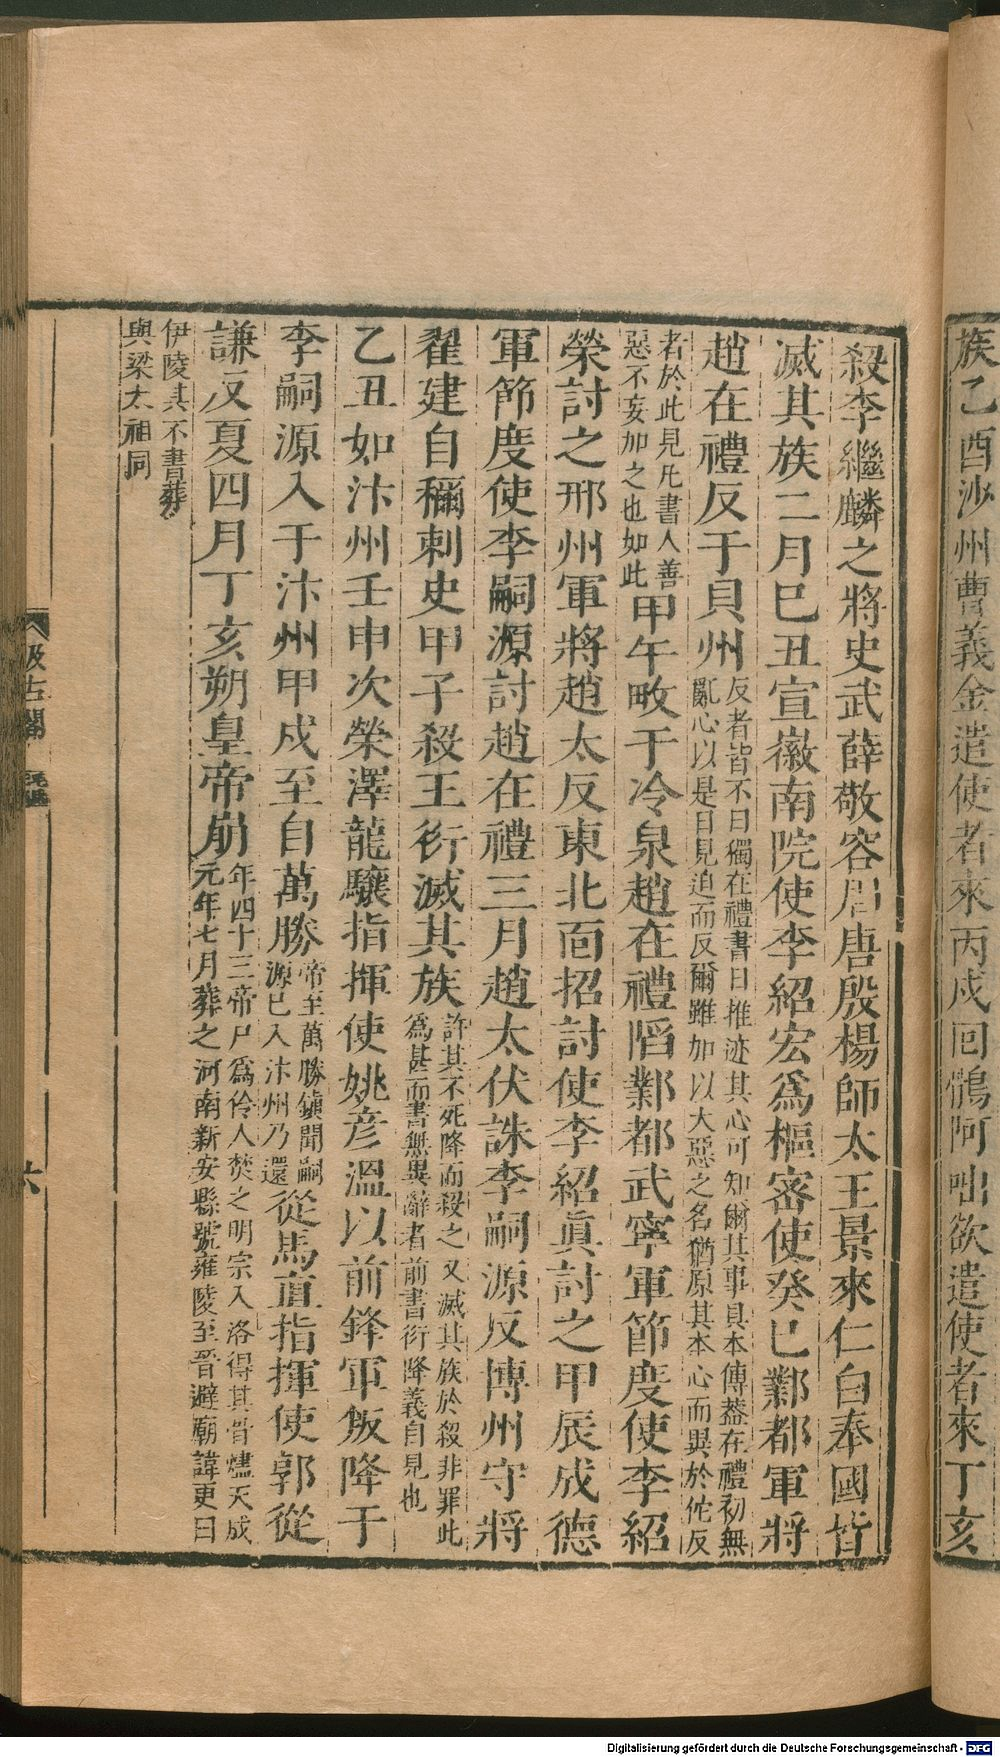 族乙酉沙州曹義金遣使者來丙戍回鶻阿咄欲遣使者來丁亥
殺李繼麟之將史武薛敬容周唐殷楊師太王景來仁白奉國皆
滅其族二月巳丑宣徽南院使李紹宏爲樞密使癸巳鄴都軍將
趙在禮反于貝州反者皆不日獨在禮書日推迹其心可知爾其事具本傳葢在禮初無
亂心以是日見迫而反爾雖加以大惡之名猶原其本心而異於佗反
者於此見凡書人善
惡不妄加之也如此甲午畋于冷泉趙在禮陷鄴都武寧軍節度使李紹
榮討之邢州軍將趙太反東北面招討使李紹眞討之甲辰成德
軍節度使李嗣源討趙在禮三月趙太伏誅李嗣源反博州守將
翟建自稱刺史甲子殺王衍滅其族許其不死降而殺之又滅其族於殺非罪此
爲甚而書無異辭者前書衍降義自見也
乙丑如汴州壬申次榮澤龍驤指揮使姚彥溫以前鋒軍叛降于
李嗣源入于汴州甲戍至自萬勝帝至萬勝鎮聞嗣
源已入汴州乃還從馬直指揮使郭從
謙反夏四月丁亥朔皇帝崩年四十三帝尸爲伶人焚之明宗入洛得其骨燼天成
元年七月葬之河南新安縣號雍陵至晉避廟諱更曰
伊陵其不書葬
與梁太祖同
汲古閣
毛氏
六
Digitalisierung gefördert durch die Deutsche Forschungsgemeinschaft - DFG